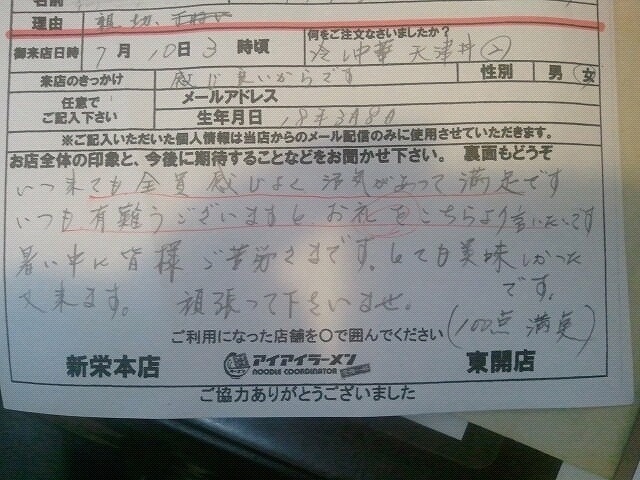 名前
理由 親切、
御来店日時 7月10日3時頃 何をご注文なさいましたか?
冷し中華 天津丼②
来店のきっかけ 感じ良いからです 性別 男 女
任意でご記入下さい メールアドレス
生年月日 18年3月8日
※ご記入いただいた個人情報は当店からのメール配信のみに使用させていただきます。
お店全体の印象と、今後に期待することなどをお聞かせ下さい。 裏面もどうぞ
いつ来ても全員感じよく活気があって満足です
いつも有難うございますと、お礼をこちらより言いたいです
暑い中に皆様ご苦労さまです。とても美味しかった
です。
又来ます。 頑張って下さいませ。
(100点満点)
ご利用になった店舗を○で囲んでください
新栄本店 アイアイラーメン 東開店
NOODLE COORDINATOR
ご協力ありがとうございました